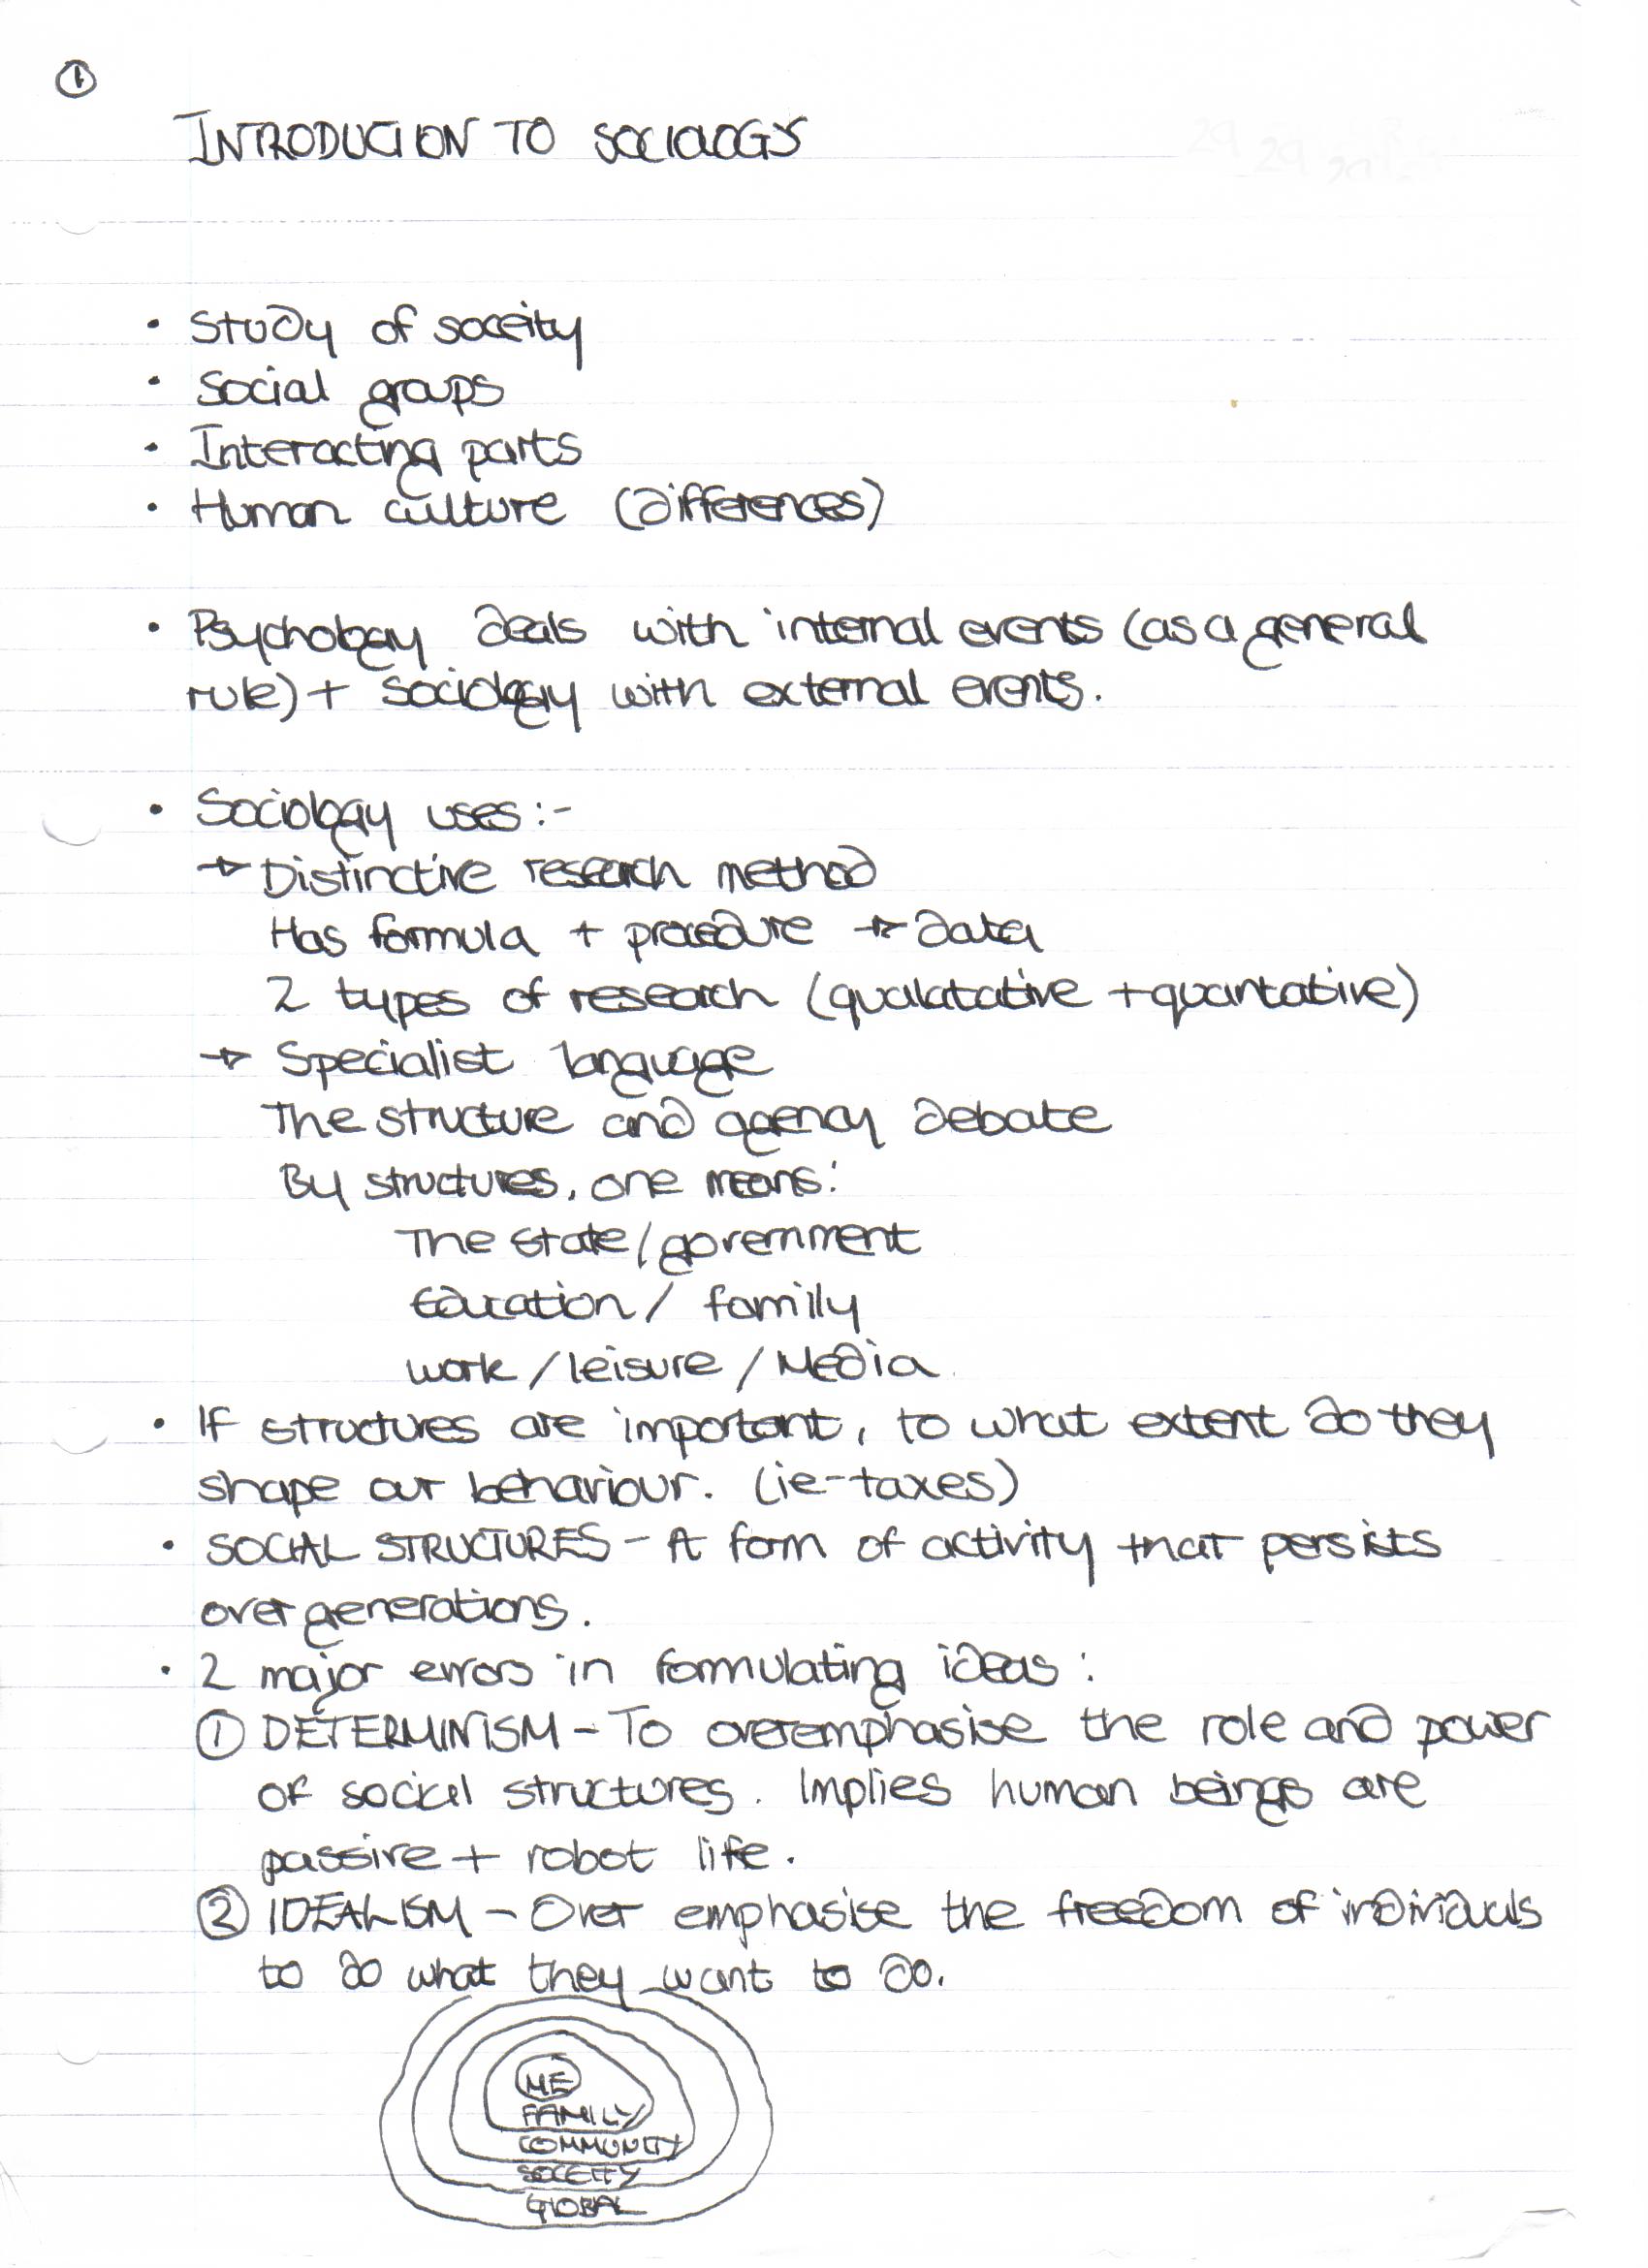 ①
INTRODUCION TO SOCIOLOGY
• Study of soceity
• Social groups
• Interacting parts
• Human culture (differences)
• Psychology deals with internal events (as a general
rule) + sociology with external events.
• Sociology uses:-
→ Distinctive research method
Has formula + procedure → data
2 types of research (qualatative + quantative)
→ Specialist language
The structure and agency debate
By structures, one means:
The state/government
Education / family
work / leisure / Media.
• If structures are important, to what extent do they
shape our behaviour. (ie-taxes)
• SOCIAL STRUCTURES - A form of activity that persists
over generations.
• 2 major errors in formulating ideas:
① DETERMINISM - To overemphasise the role and power
of social structures. Implies human beings are
passive + robot life.
② IDEALISM - Over emphasise the freedom of individuals
to do what they want to do.
ME
FAMILY
COMMUNITY
SOCEITY
GLOBAL